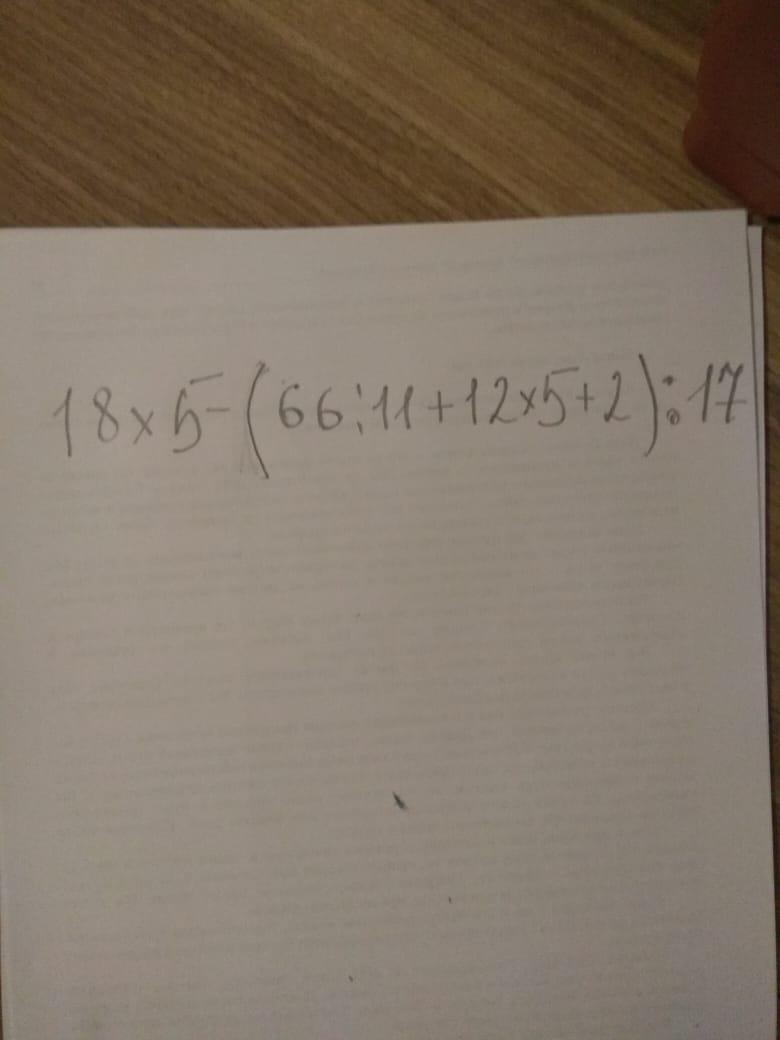 18×5-(66:11+12×5+2):17